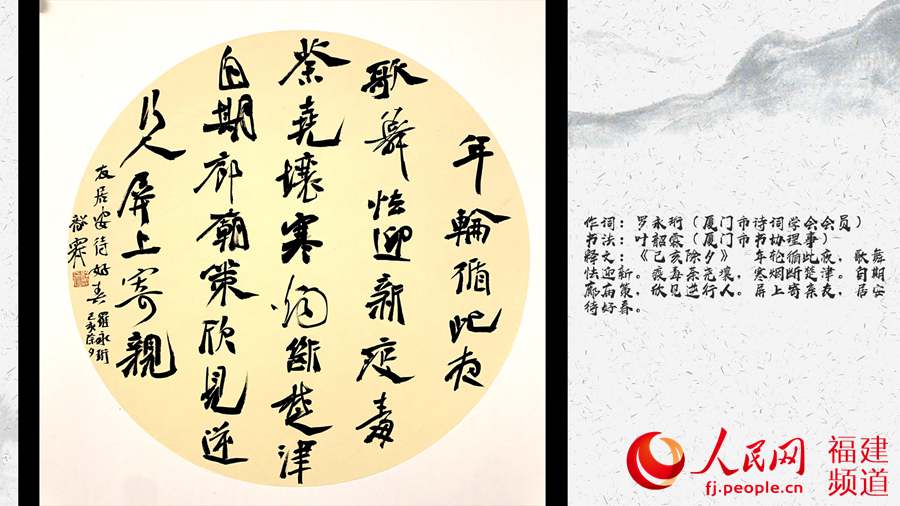 年輪循此夜
歌舞怯迎新疫毒
荼堯壤寒烟斷楚津
自期廊廟策欣見逆
行人屏上寄親
友居安待好春 羅永珩
己亥除夕
作词：罗永珩（厦门市诗词学会会员）
书法：叶韶（厦门市书协理事）
释文：《己亥除夕》 年轮循此夜，歌舞
怯迎新。疫毒荼尧壤，寒烟断楚津。自期
廊庙策，欣见逆行人。屏上寄亲友，居安
待好春。
人民网
fj.people.cn
福建
频道